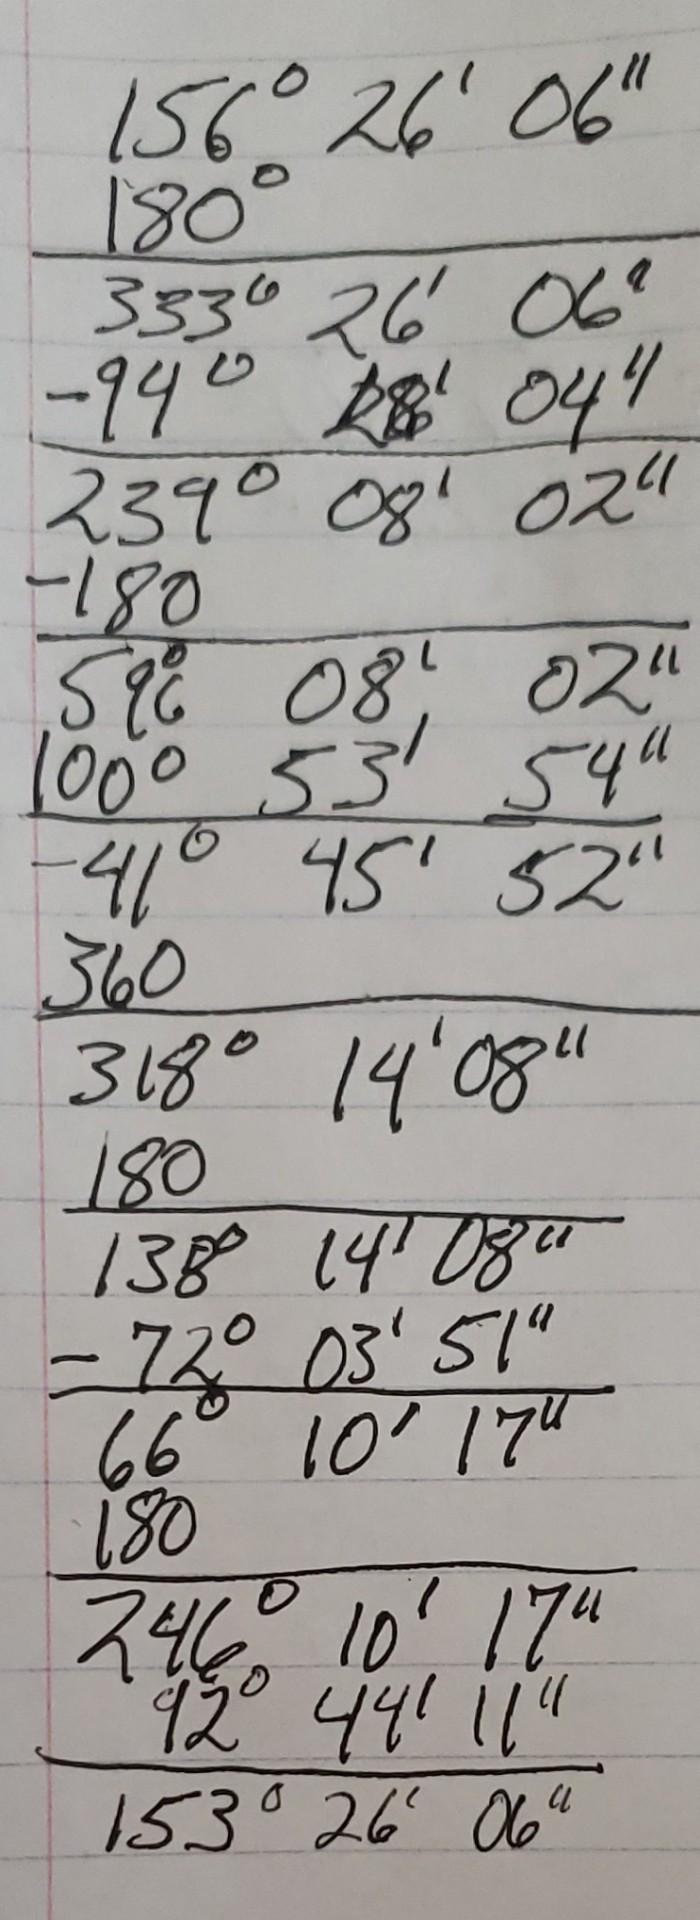 156° 26' 06"
180°
333° 26' 06"
-94° 18' 04"
239° 08' 02"
-180
59° 08' 02"
100° 53' 54"
-41° 45' 52"
360
318° 14' 08"
180
138° 14' 08"
-72° 03' 51"
66° 10' 17"
180
246° 10' 17"
92° 44' 11"
153° 26' 06"